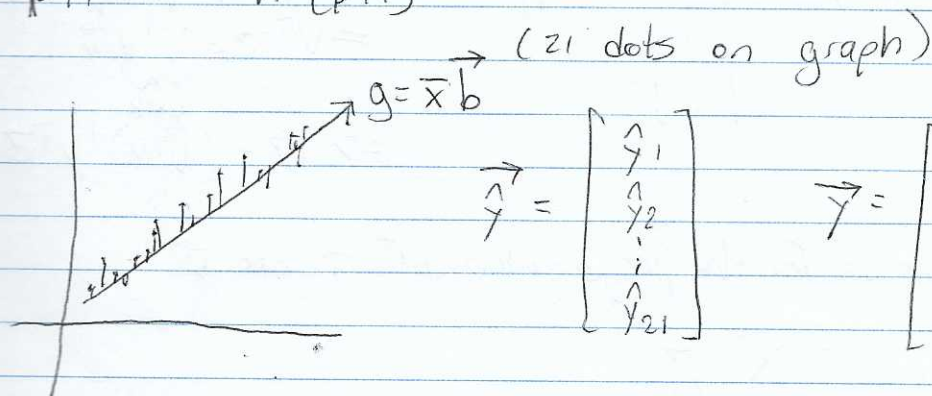 (21 dots on graph)
g = x̄ b⃗
ŷ⃗ = [ ŷ1
ŷ2
⋮
ŷ21 ]
y⃗ = [